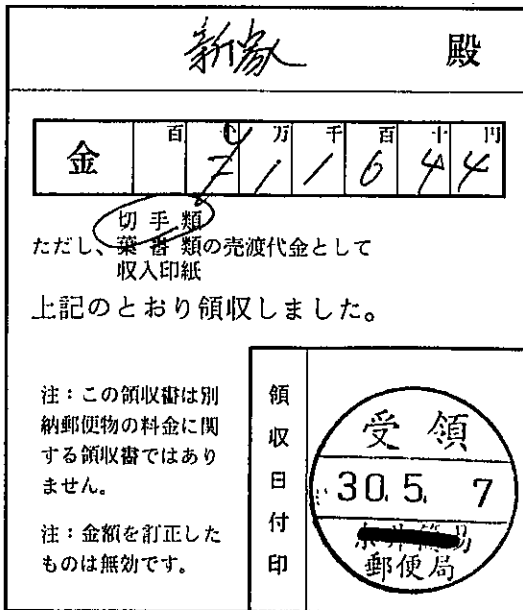 新家 殿
金 百 十 万 千 百 十 円
1 1 6 4 4
切手類
ただし、葉書類の売渡代金として
収入印紙
上記のとおり領収しました。
注：この領収書は別
納郵便物の料金に関
する領収書ではあり
ません。
注：金額を訂正した
ものは無効です。
領収日付印
受領
30. 5. 7
郵便局